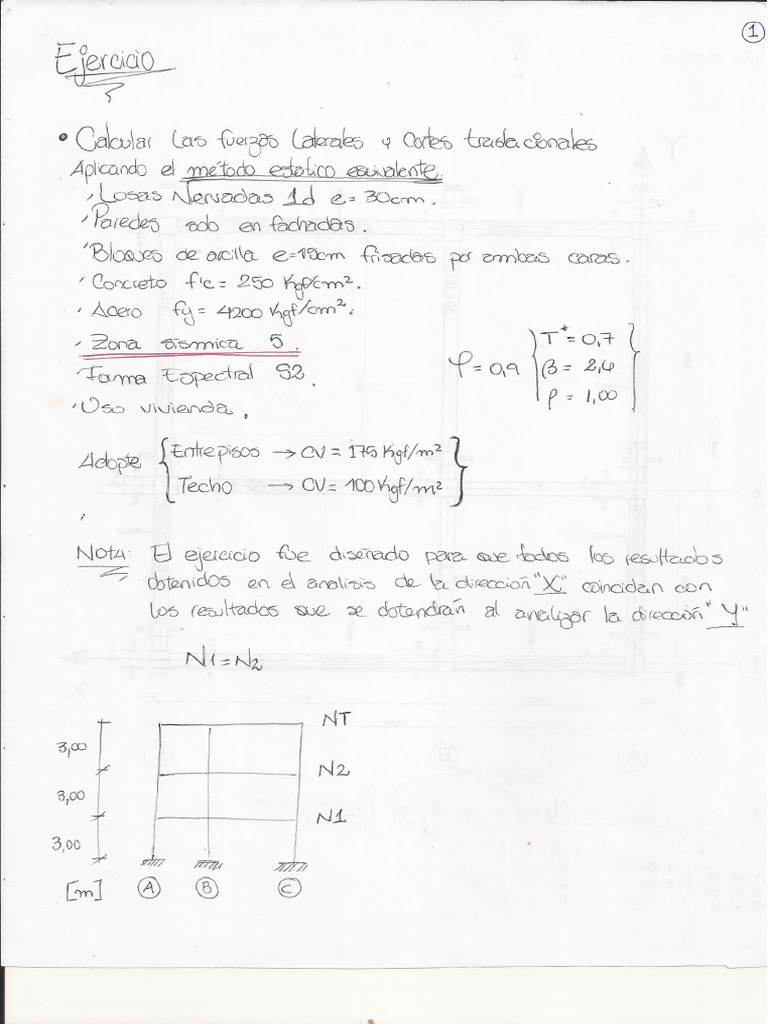 1
Ejercicio
• Calcular las fuerzas laterales y cortes traslacionales
Aplicando el método estatico equivalente.
Losas Nervadas 1d e = 30cm.
Paredes solo en fachadas.
Bloques de arcilla e=15cm frisadas por ambas caras.
Concreto f'c = 250 Kgf/cm².
Acero fy = 4200 Kgf/cm².
Zona sismica 5.
Forma Espectral S2.
φ = 0,9 { T* = 0,7
β = 2,6
ρ = 1,00 }
Uso vivienda.
Adopte { Entrepisos → CV = 175 Kgf/m²
Techo → CV = 100 Kgf/m² }
NOTA: El ejercicio fue diseñado para que todos los resultados
obtenidos en el analisis de la dirección "X" coincidan con
los resultados que se obtendrán al analizar la dirección "Y"
N1 = N2
NT
3,00
N2
3,00
N1
3,00
[m] A B C